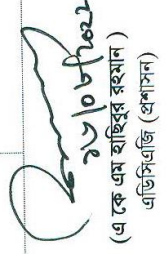 ১৮/০৮/২০২২
(এ কে এম হাছিবুর রহমান)
এডিসিএজি (প্রশাসন)